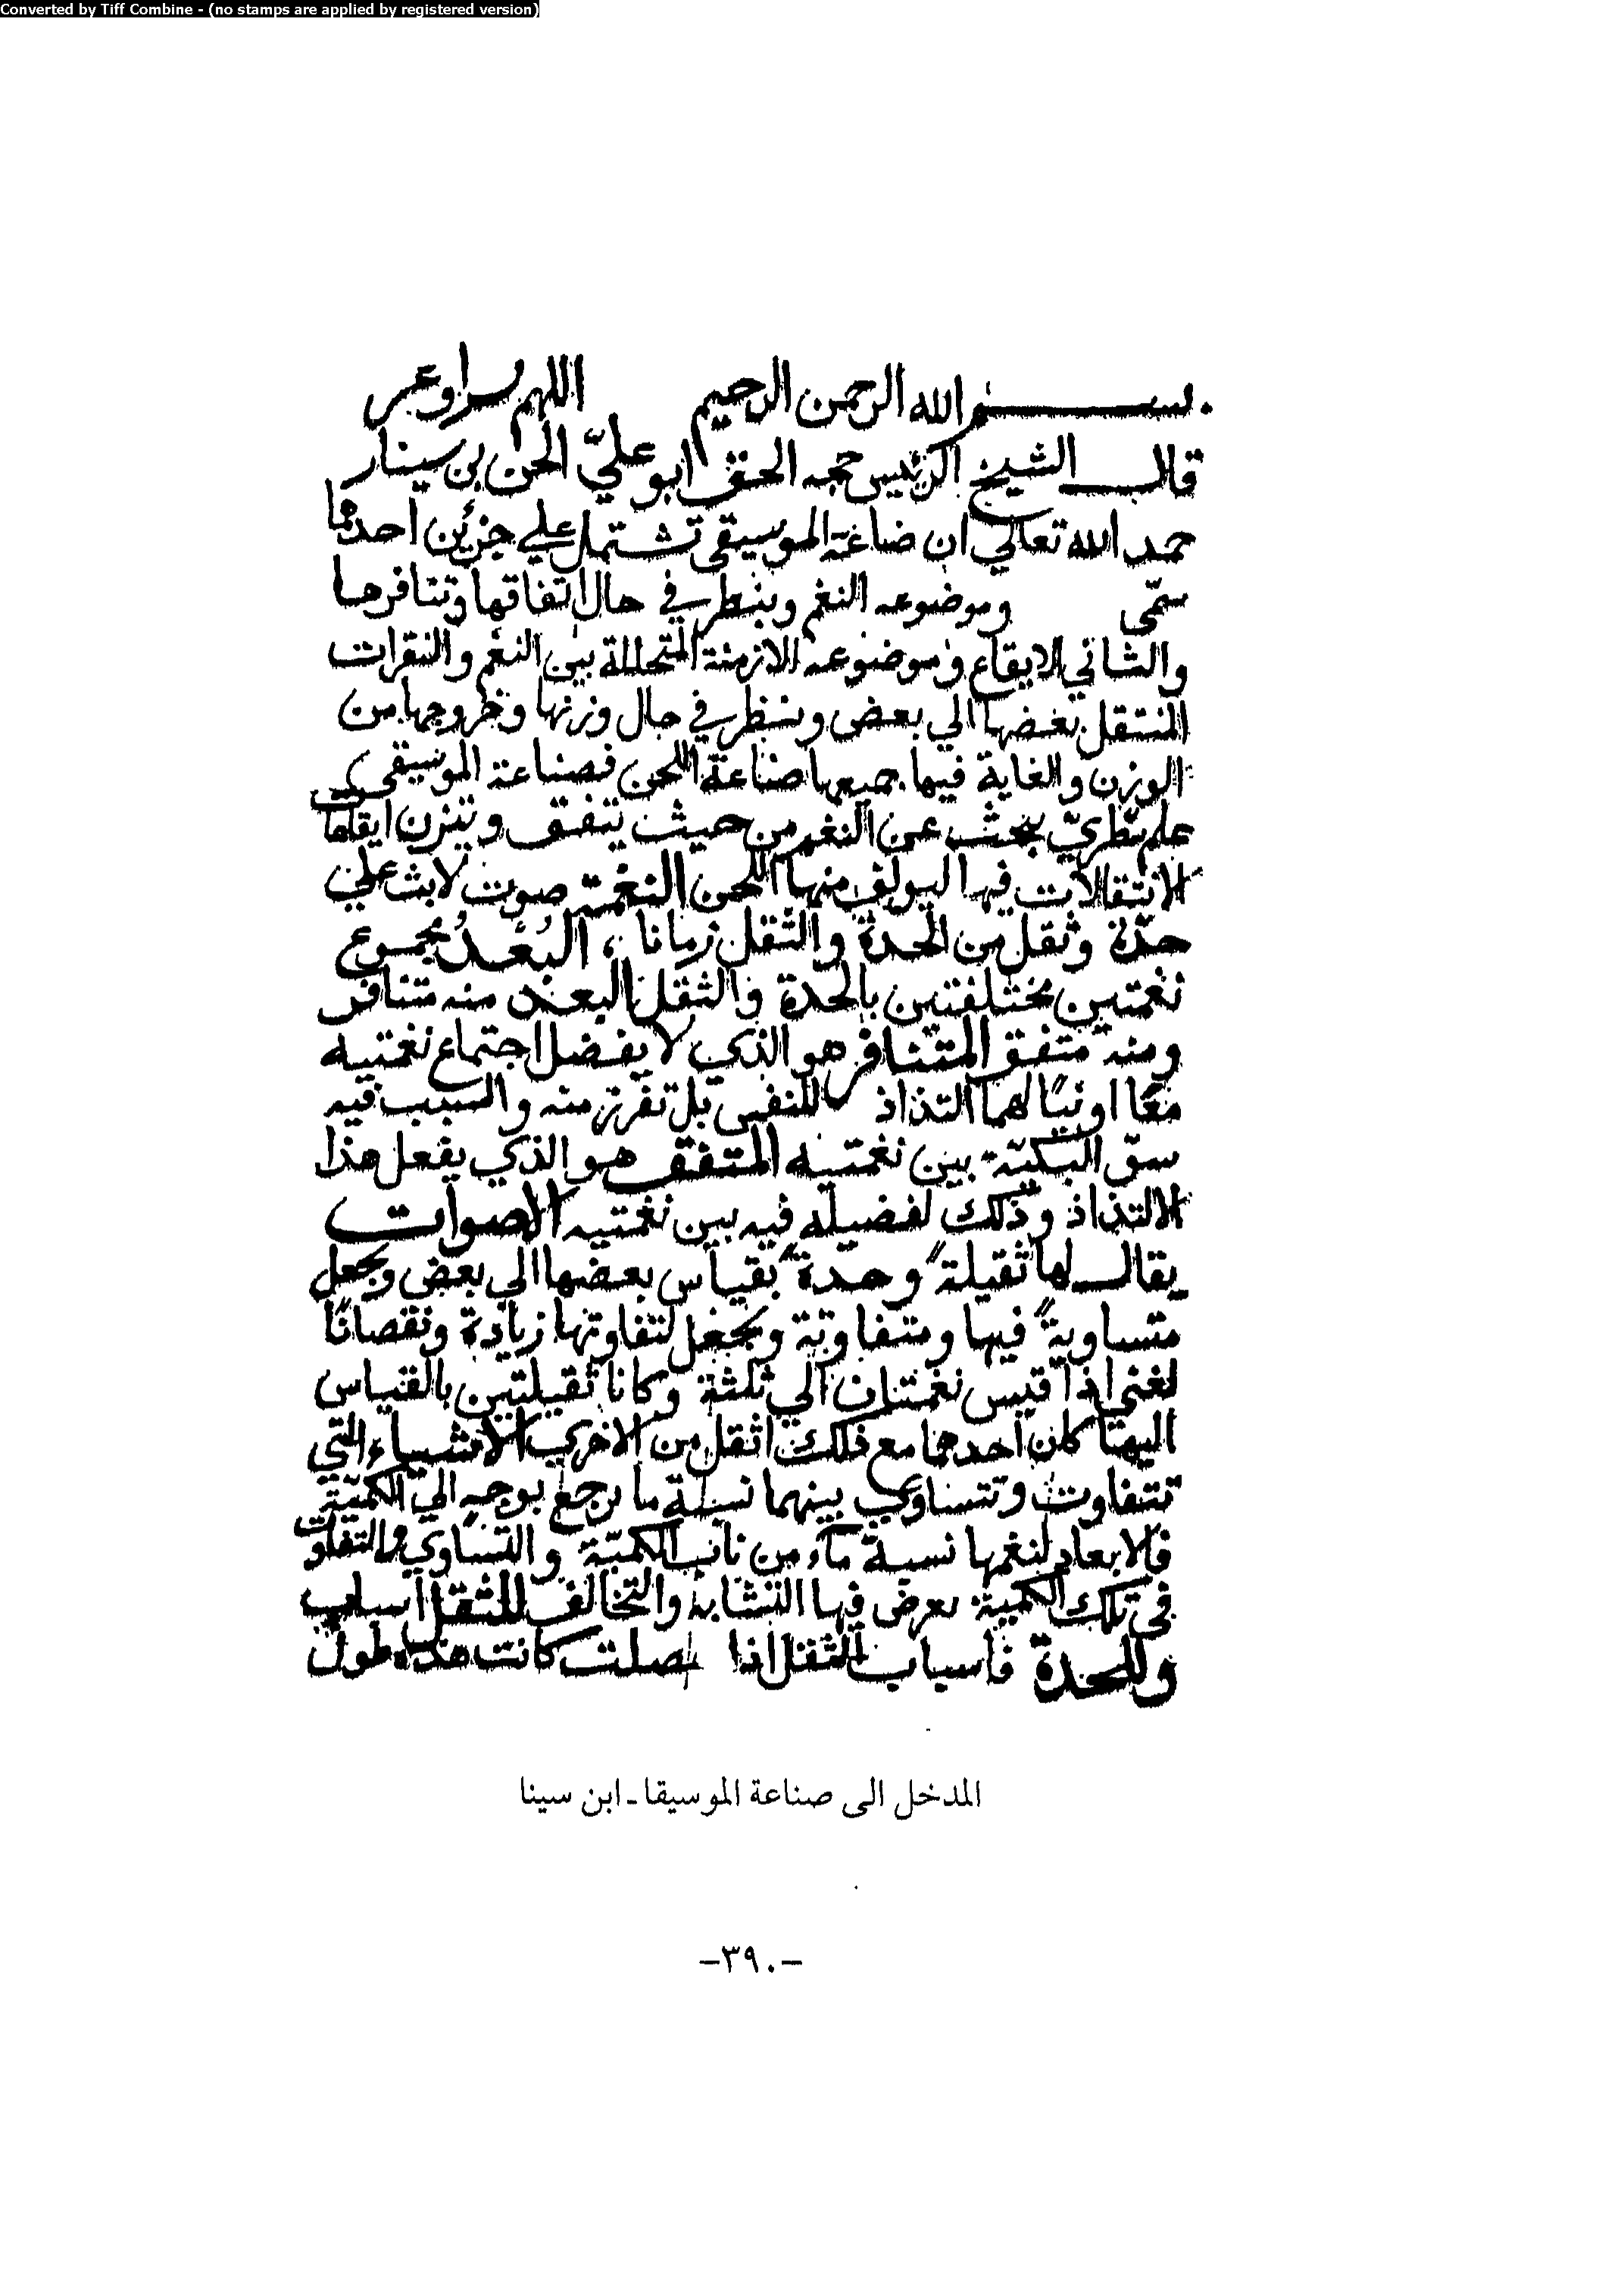 Converted by Tiff Combine - (no stamps are applied by registered version)
بسم الله الرحمن الرحيم اللهم
قال الشيخ الرئيس حجه الحق ابو علي الحسن بن سينا
حمد الله تعالي ان صناعة الموسيقى تشتمل علي جزئين احدهما
سمّى وموضوعه النغم وينظر في حال اتفاقها وتنافرها
والثاني الايقاع وموضوعه الازمنة المتخللة بين النغم والنقرات
المنتقل بعضها الي بعض وينظر في حال وزنها وخروجها من
الوزن والغاية فيها جميعها صناعة اللحن فصناعة الموسيقى
علم نظريّ يبحث عن النغم من حيث تتفق وتتزن ايقاعا
الانتقالات فيها ليولف منها اللحن النغمة صوت لابث علي
حدّة وثقل من الحدة والثقل زمانا، البُعدُ مجموع
نغمتين مختلفتين بالحدة والثقل البعد منه متنافر
ومنه متفق المتنافر هو الذي لا يفضل اجتماع نغمتيه
معًا او لهما التذاذ للنفس بل تفرز منه والسبب فيه
بين نغمتيه المتفق هو الذي يفعل هذا
الالتذاذ وذلك لفضيله فيه بين نغمتيه الاصوات
يقال لها ثقيلة وحدة بقياس بعضها الي بعض ويجعل
متساوية فيها ومتفاوتة ويجعل لتفاوتها زيادة ونقصانًا
لغني اذا قيس نغمتان الي ثلثة وكانا ثقيلتين بالقياس
اليها كان احدهما مع ذلك اثقل من الاخري الاشياء التي
تتفاوت وتتساوي بينهما نسبة ما يرجع بوجه الي الكميّة
فالابعاد لنغمها نسبة ما من باب الكميّة والتساوي والتفاوت
في تلك الكمية يعرض فيها التشابه والتخالف للثقل اسباب
وللحدة فاسباب الثقل اذا كانت هذه طول
المدخل الى صناعة الموسيقا - ابن سينا
-٣٩٠-